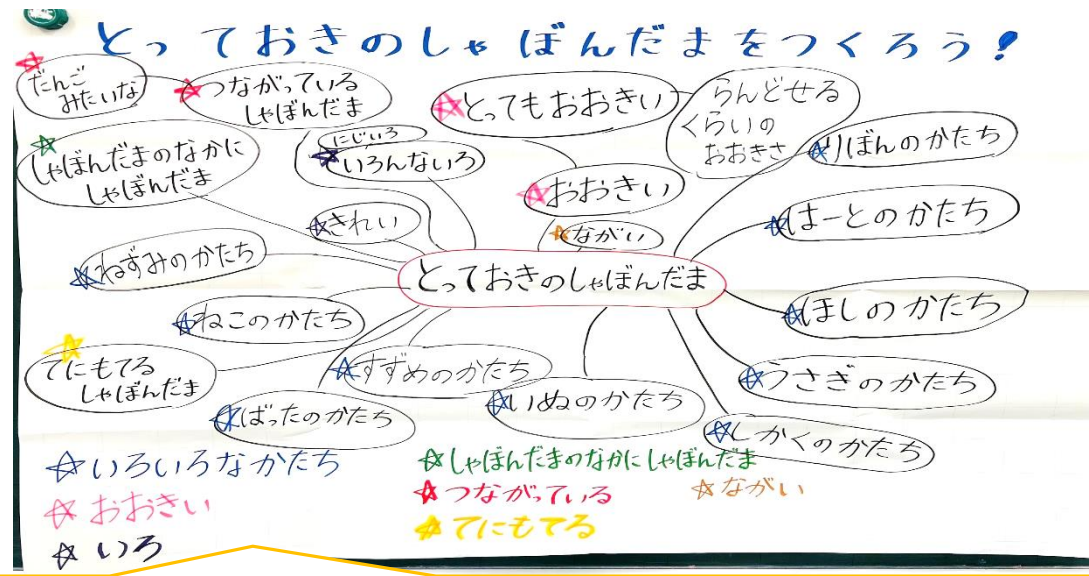 とっておきのしゃぼんだまをつくろう!
だんご
みたいな
つながっている
しゃぼんだま
とってもおおきい
らんどせる
くらいの
おおきさ
しゃぼんだまのなかに
しゃぼんだま
にじいろ
いろんないろ
りぼんのかたち
おおきい
きれい
ながい
はーとのかたち
ねずみのかたち
とっておきのしゃぼんだま
ほしのかたち
ねこのかたち
てにもてる
しゃぼんだま
すずめのかたち
うさぎのかたち
ばったのかたち
いぬのかたち
しかくのかたち
☆いろいろなかたち
☆おおきい
☆いろ
☆しゃぼんだまのなかにしゃぼんだま
☆つながっている
☆ながい
☆てにもてる